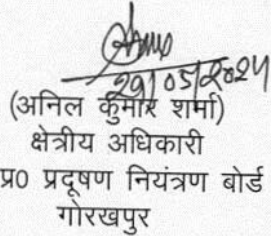 29/05/2024
(अनिल कुमार शर्मा)
क्षेत्रीय अधिकारी
प्र0 प्रदूषण नियंत्रण बोर्ड
गोरखपुर